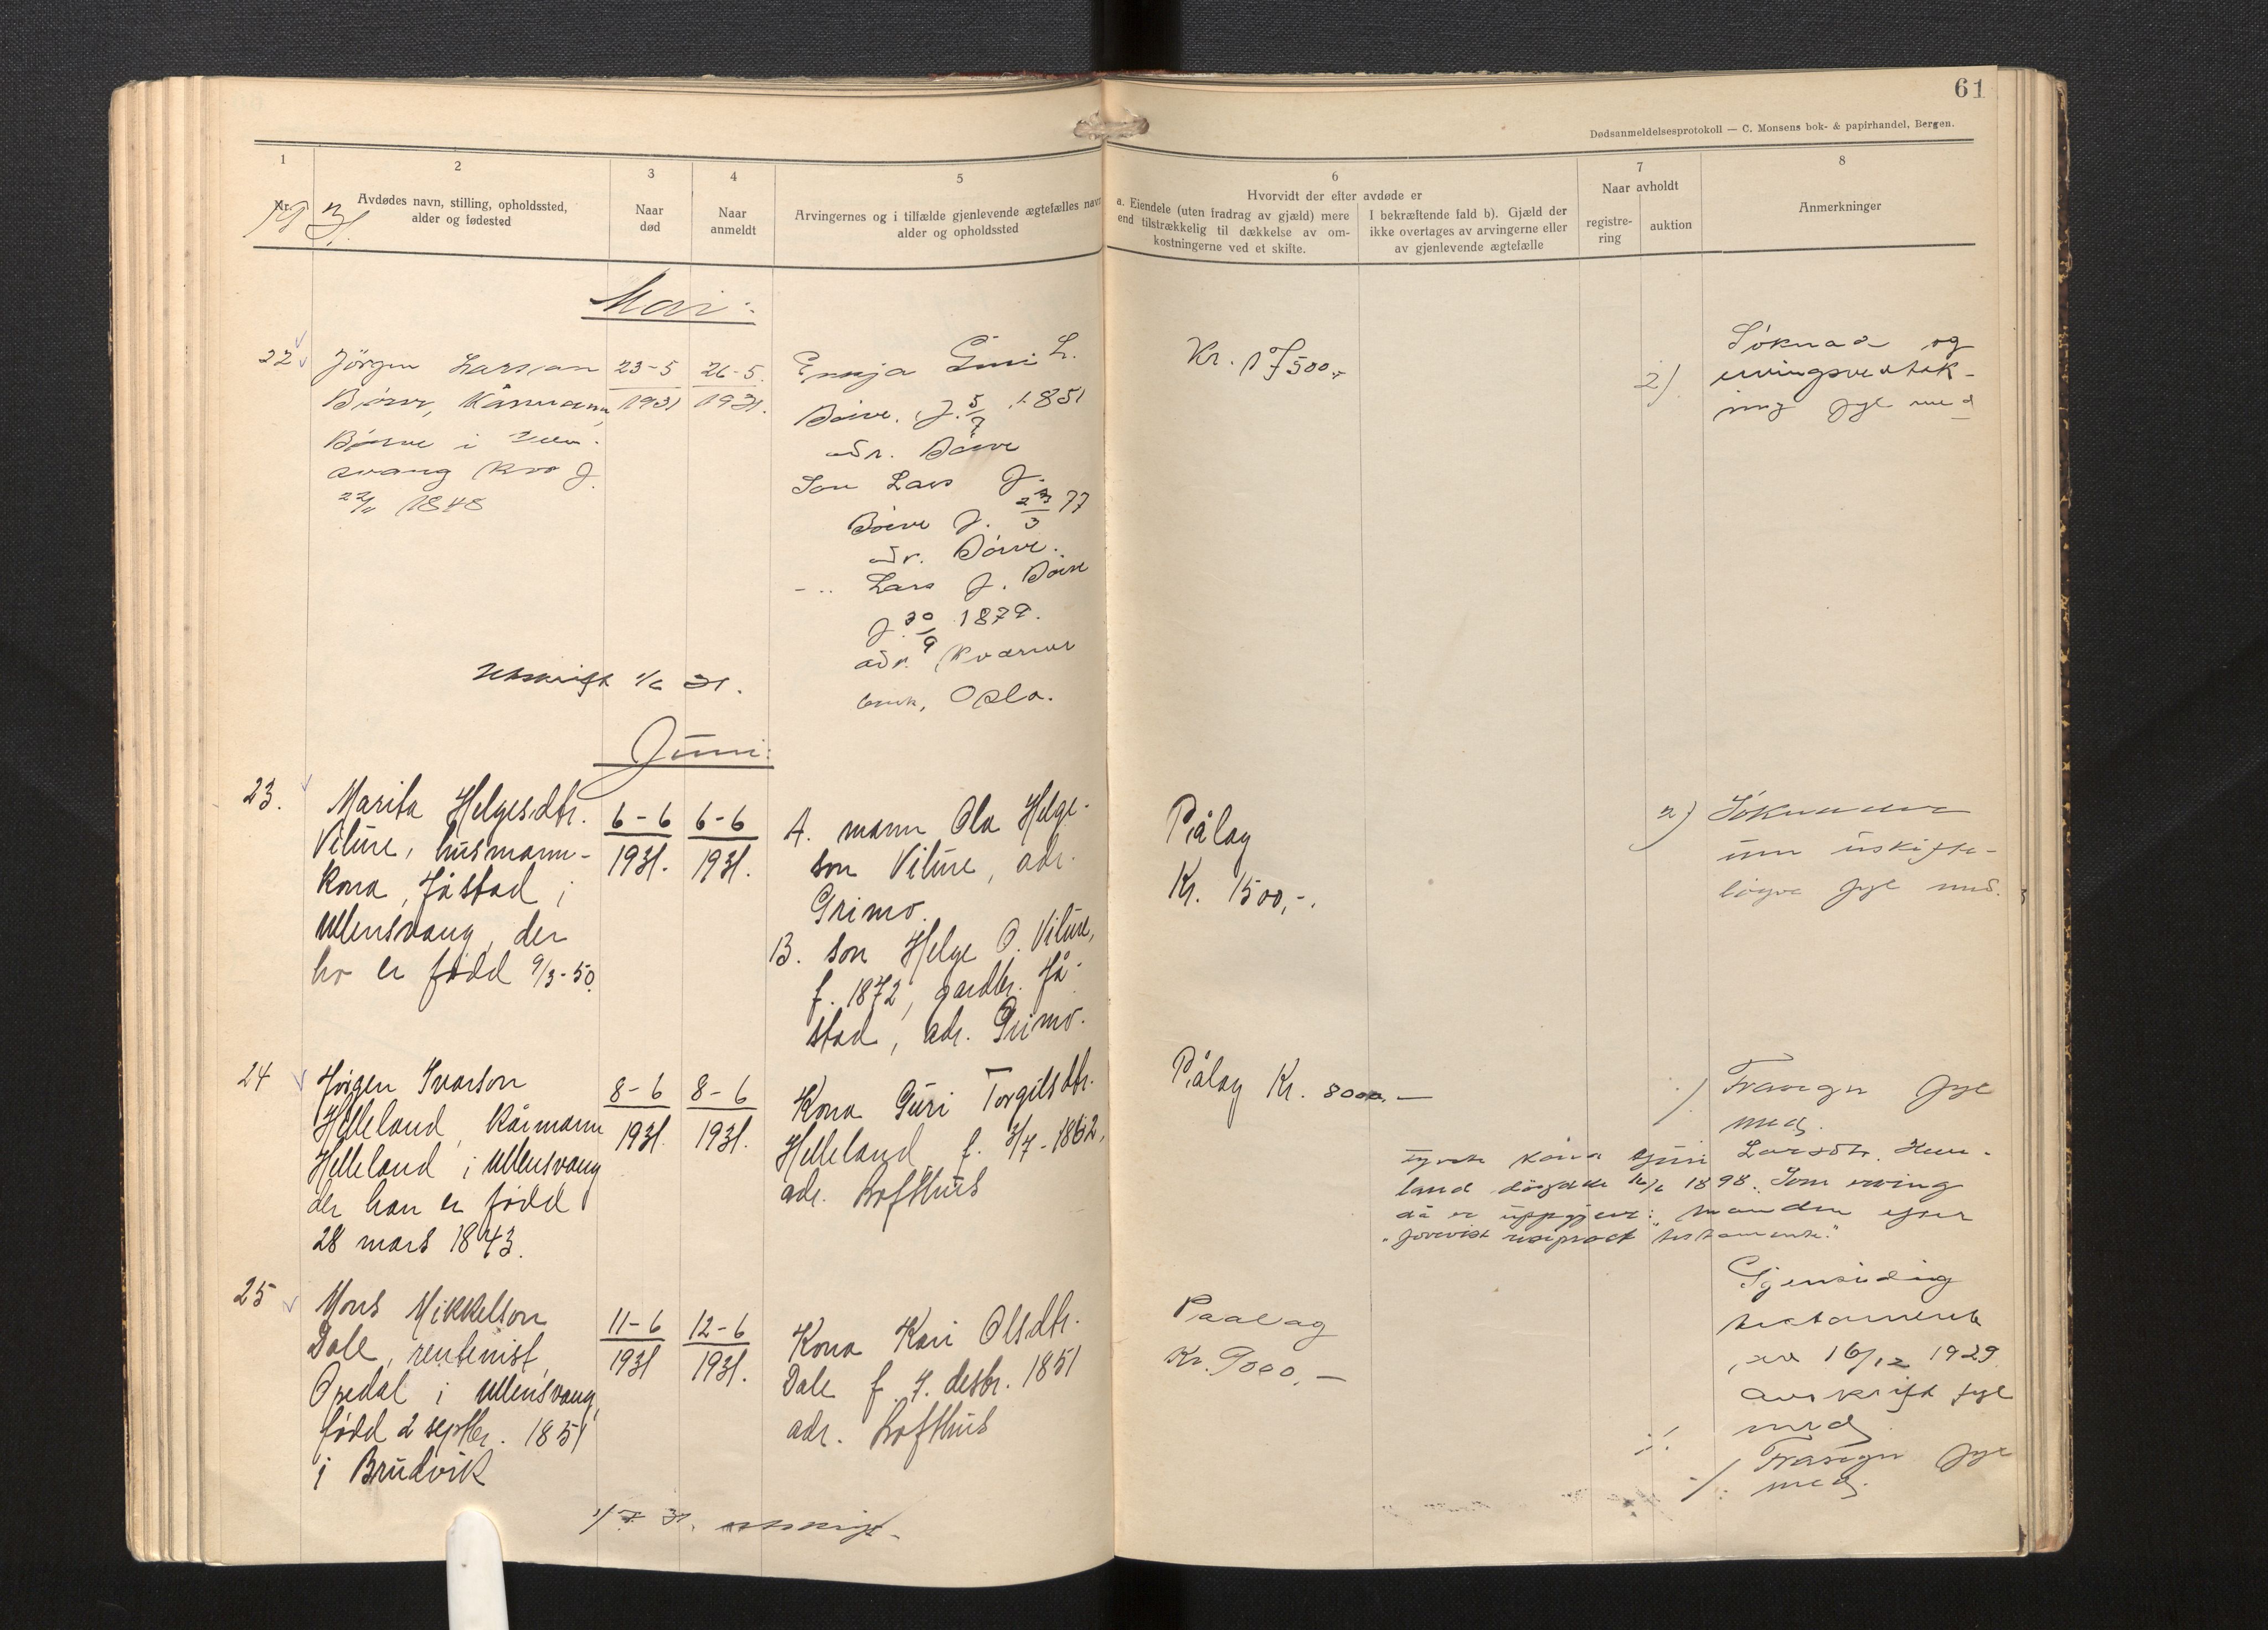 61
Dødsanmeldelsesprotokoll — C. Monsens bok- & papirhandel, Bergen.
1
2
3
4
5
6
7
8
Nr.
19 31.
Avdødes navn, stilling, opholdssted,
alder og fødested
Naar
død
Naar
anmeldt
Arvingernes og i tilfælde gjenlevende ægtefælles navn
alder og opholdssted
Hvorvidt der efter avdøde er
a. Eiendele (uten fradrag av gjæld) mere
end tilstrækkelig til dækkelse av om-
kostningerne ved et skifte.
I bekræftende fald b). Gjæld der
ikke overtages av arvingerne eller
av gjenlevende ægtefælle
Naar avholdt
registre-
ring
auktion
Anmerkninger
Mai:
22
Jörgen Larsson
Börve, Kårmann,
Börve i Ullen-
svang kvar f.
1848
23-5
1931
26-5.
1931.
Enkja Guri L.
Börve. f. 5/7 1851
adr. Börve
Son Lars J.
Börve f. 23/3 77
adr. Börve.
-"- Lars J. Börve
f. 30/9 1879.
adr. Kværner
bruk, Oslo.
Kr. 17500,-
2)
Söknad og
ervingsvedtak-
ing fyl med
Utskrift 1/6 31.
Juni:
23.
Marita Helgesdtr.
Vilure, husmann-
kona, Jåstad i
Ullensvang, der
ho er född 9/3-50.
6-6
1931.
6-6
1931.
A. mann Ola Helge-
son Vilure, adr.
Grimo.
B. son Helge O. Vilure,
f. 1872, gardbr. Jå-
stad, adr. Grimo.
Pålag
Kr. 1500,-.
2)
um uskifte-
löyve fyl med.
24
Jörgen Ivarson
Helleland, Kårmann
Helleland i Ullensvang
der han er född
28 mars 1843.
8-6
1931.
8-6
1931.
Kona Guri Torgilsdtr.
Helleland f. 3/7-1862,
adr. Lofthus
Pålag Kr. 8000,-
Frasegn fyl
med.
Fyrste kona Guri Larsdtr. Helle-
land döydde 16/6 1898. Som erving
då er uppgjeve: Mannen etter
"forevist resiproct testamente."
25
Mons Mikkelson
Dale, rentenist,
Opedal i Ullensvang,
född 2 septbr. 1851
i Brudvik
11-6
1931
12-6
1931.
Kona Kari Olsdtr.
Dale f. 7. desbr. 1851
adr. Lofthus
Paalag
Kr. 9000,-
Gjensidig
testamente
av 16/12 1929
avskrift fyl
med
Frasegn fyl
med.
1/7 31. utskrift.